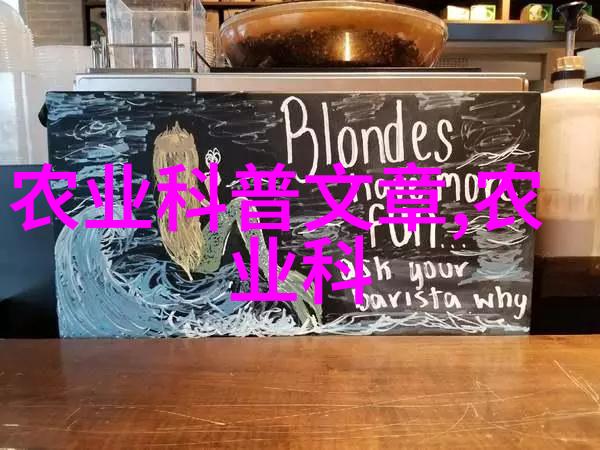 Blondes
have more
农业科普文章,农
fun...
业科
ask your
barista why